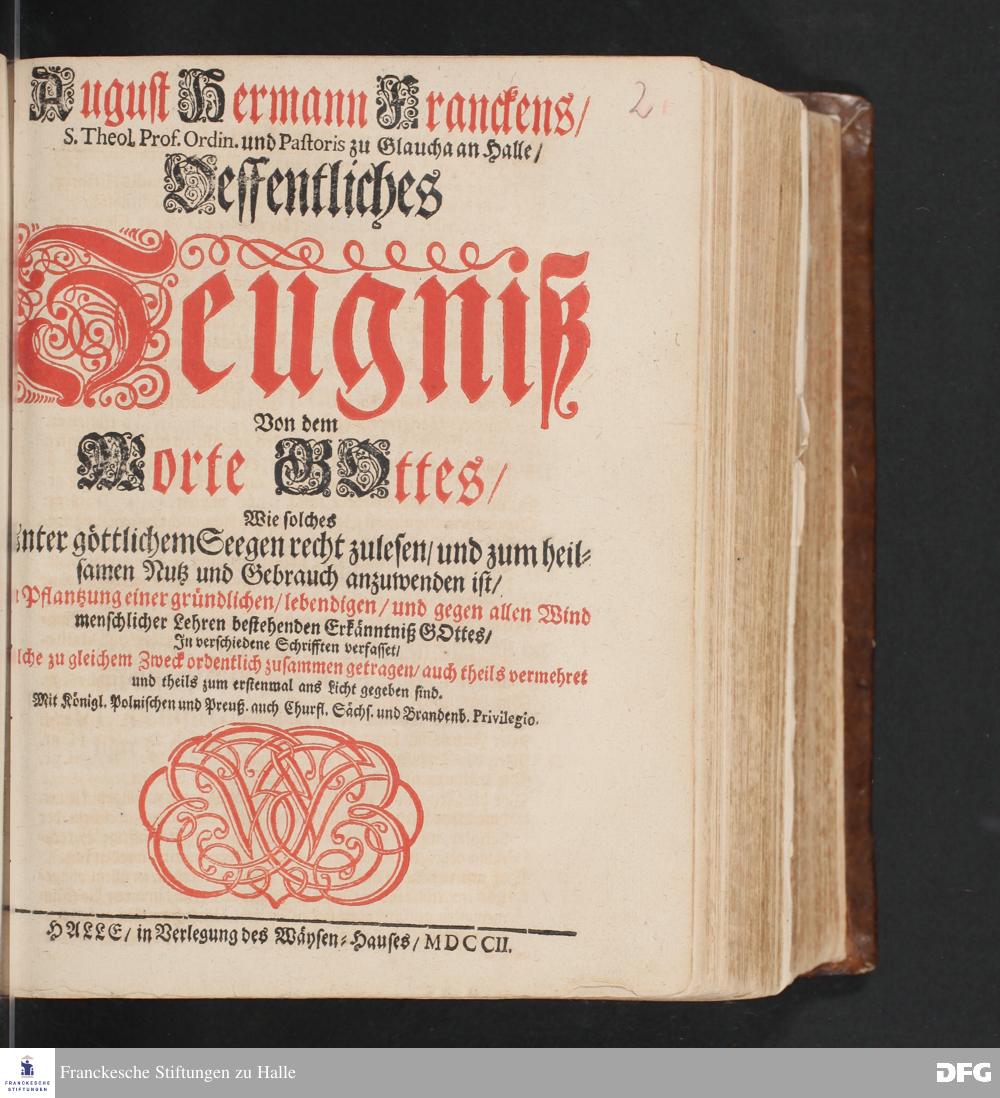 August Hermann Franckens/
S. Theol. Prof. Ordin. und Pastoris zu Glaucha an Halle/
Oeffentliches
Zeugniß
Von dem
Worte GOttes/
Wie solches
Unter göttlichem Seegen recht zulesen/ und zum heil-
samen Nutz und Gebrauch anzuwenden ist/
Pflantzung einer gründlichen/ lebendigen/ und gegen allen Wind
menschlicher Lehren bestehenden Erkänntniß GOttes/
In verschiedene Schrifften verfasset/
lche zu gleichem Zweck ordentlich zusammen getragen/ auch theils vermehret
und theils zum erstenmal ans Licht gegeben sind.
Mit Königl. Polnischen und Preuß. auch Churfl. Sächs. und Brandenb. Privilegio.
HALLE/ in Verlegung des Wäysen-Hauses/ MDCCII.
2
FRANCKESCHE
STIFTUNGEN
Franckesche Stiftungen zu Halle
DFG